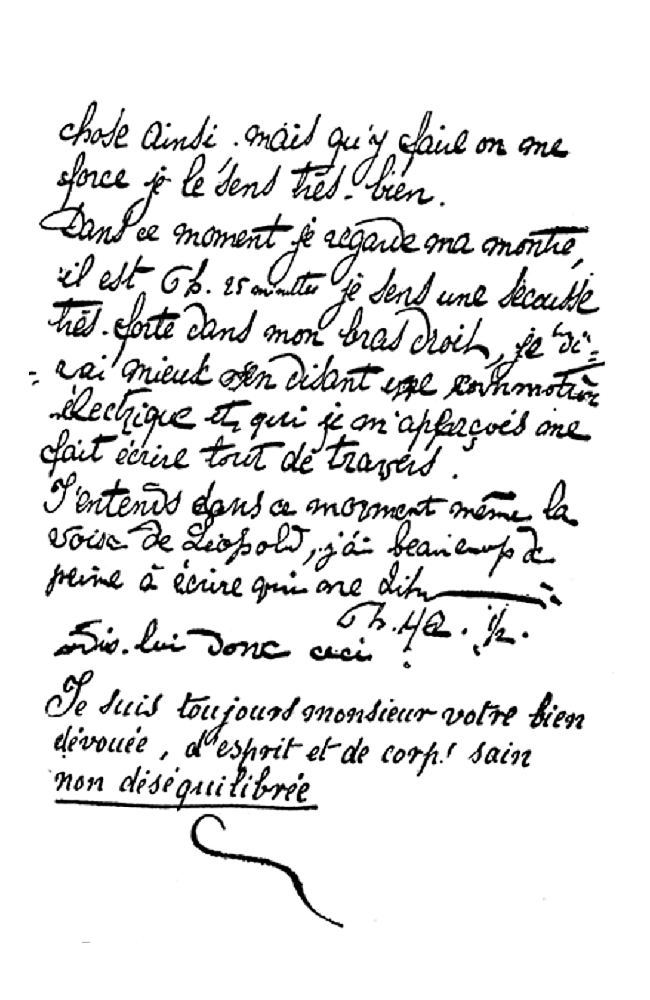 chose ainsi. mais qu'y faire on me
force je le sens très-bien.
Dans ce moment je regarde ma montre,
il est 9h. 25 minutes je sens une secousse
très-forte dans mon bras droit, je di=
=rai mieux en disant une commotion
électrique et qui je m'aperçois me
fait écrire tout de travers.
J'entends dans ce moment même la
voix de Léopold, j'ai beaucoup de
peine à écrire qui me dit
42. 1/2.
Dis-lui donc ceci :
Je suis toujours monsieur votre bien
dévouée, d'esprit et de corps sain
non déséquilibrée